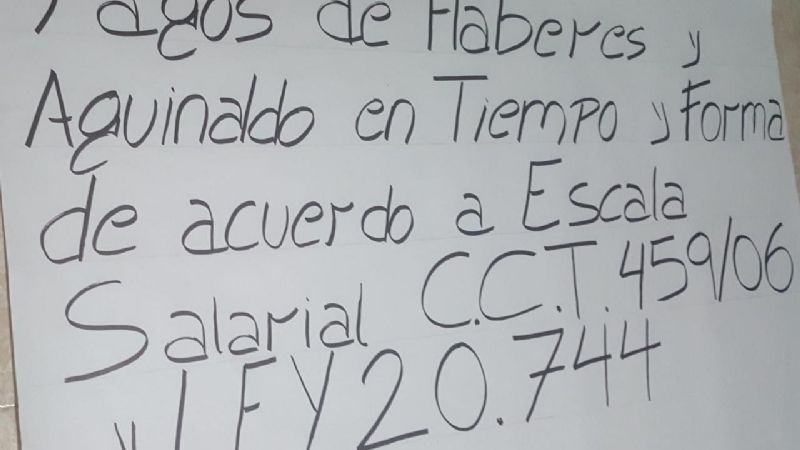 Pagos de Haberes y
Aguinaldo en Tiempo y Forma
de acuerdo a Escala
Salarial C.C.T. 459/06
y LEY 20.744